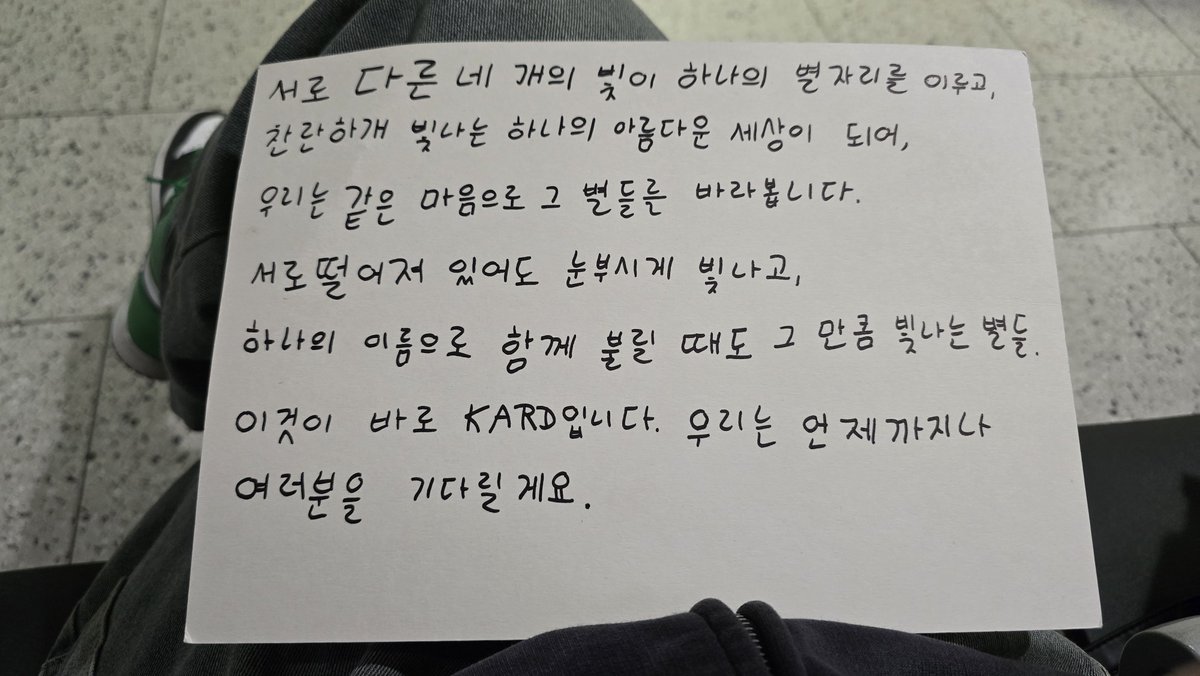 서로 다른 네 개의 빛이 하나의 별자리를 이루고,
찬란하개 빛나는 하나의 아름다운 세상이 되어,
우리는 같은 마음으로 그 별들을 바라봅니다.
서로 떨어져 있어도 눈부시게 빛나고,
하나의 이름으로 함께 불릴 때도 그 만큼 빛나는 별들.
이것이 바로 KARD입니다. 우리는 언제까지나
여러분을 기다릴게요.